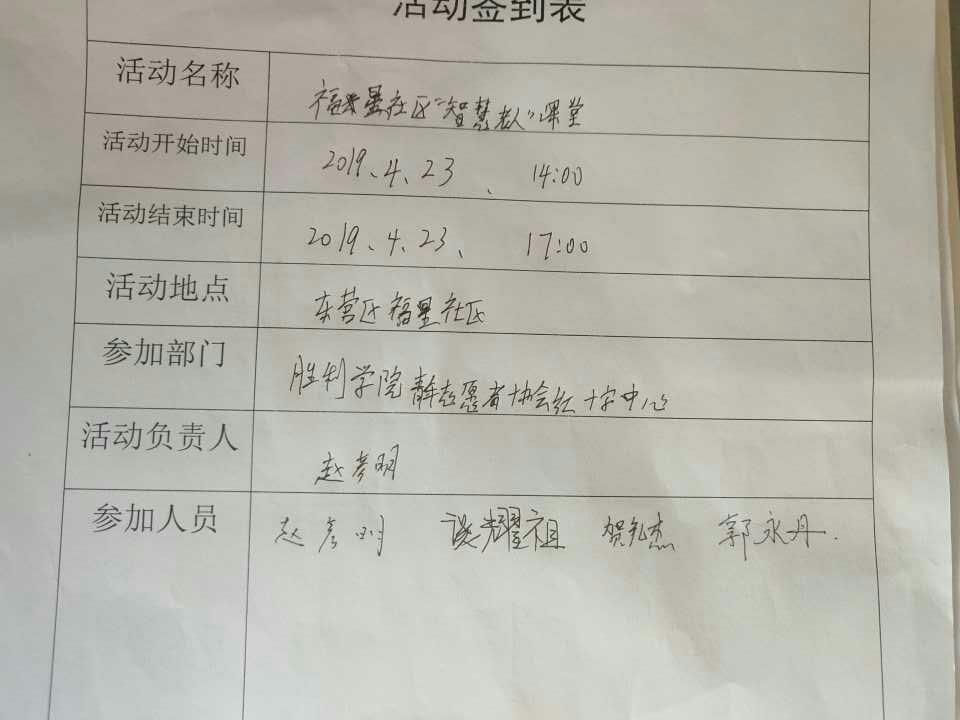 活动签到表
活动名称 福星社区“智慧老人”课堂
活动开始时间 2019、4、23、 14:00
活动结束时间 2019、4、23、 17:00
活动地点 东营区福星社区
参加部门 胜利学院青年志愿者协会红十字中心
活动负责人 赵彦明
参加人员 赵彦明 谈耀祖 贺礼杰 郭永丹.